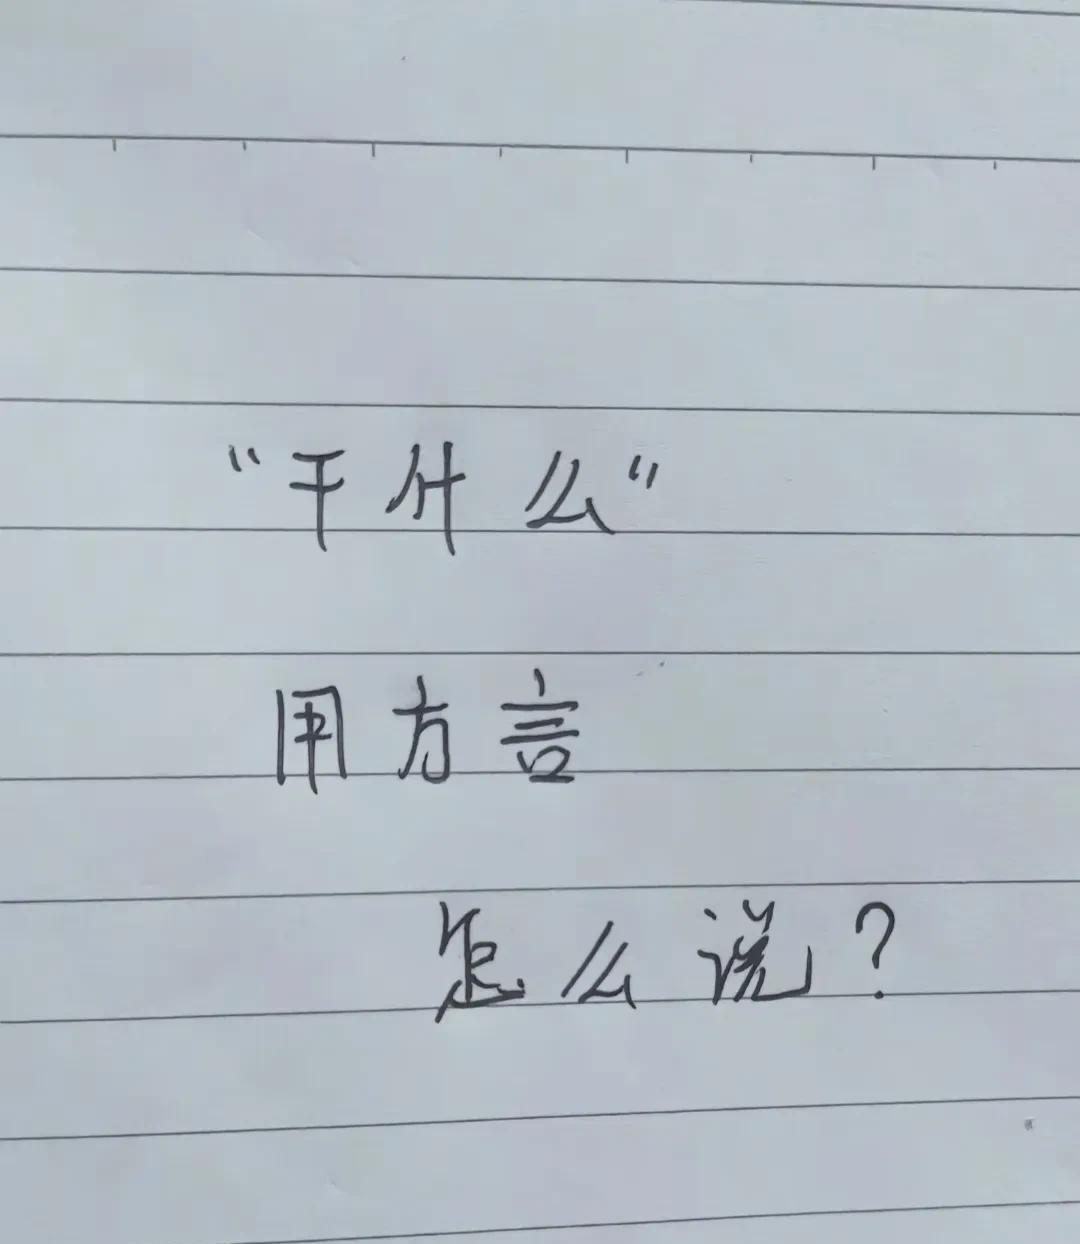 “干什么”
用方言
怎么说？